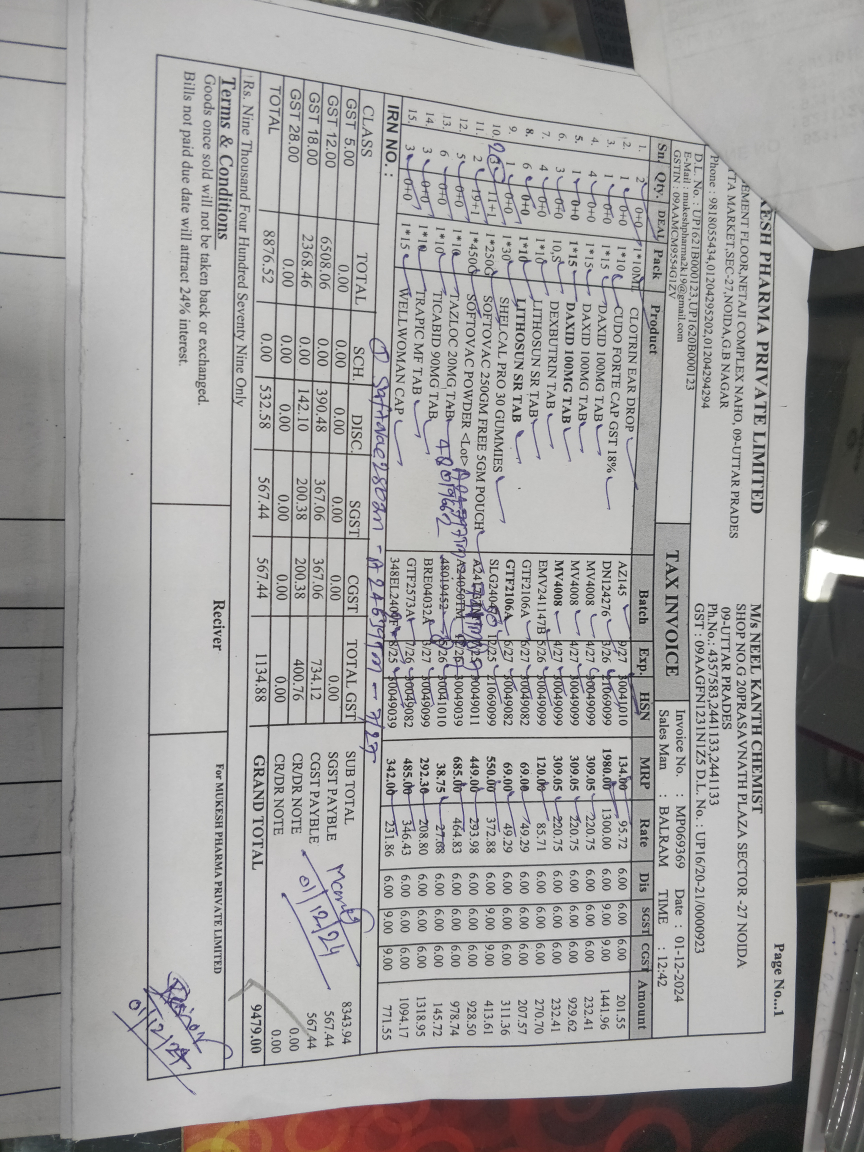 KESH PHARMA PRIVATE LIMITED
EMENT FLOOR,NETAJI COMPLEX NAHO, 09-UTTAR PRADES
TA MARKET,SEC-27,NOIDA,G.B NAGAR
Phone : 9818055434,01204295202,01204294294
D.L. No. : UP1621B000123,UP1620B000123
E-Mail : mukeshpharma2k19@gmail.com
GSTIN : 09AAMCM9554G1ZV
Page No...1
M/s NEEL KANTH CHEMIST
SHOP NO.G 20PRASAVNATH PLAZA SECTOR -27 NOIDA
09-UTTAR PRADES
Ph.No.: 4357583,2441133,2441133
GST : 09AAGFN1231N1Z5 D.L. No. : UP16/20-21/0000923
TAX INVOICE
Invoice No. : MP069369 Date : 01-12-2024
Sales Man : BALRAM TIME : 12:42
Sn. Qty. DEAL Pack Product Batch Exp. HSN MRP Rate Dis SGST CGST Amount
1. 2 0+0 1*10ML CLOTRIN EAR DROP AZI145 9/27 30041010 134.00 95.72 6.00 6.00 6.00 201.55
2. 1 0+0 1*10 CUDO FORTE CAP GST 18% DN124276 3/26 21069099 1980.00 1300.00 6.00 9.00 9.00 1441.96
3. 1 0+0 1*15 DAXID 100MG TAB MV4008 4/27 30049099 309.05 220.75 6.00 6.00 6.00 232.41
4. 4 0+0 1*15 DAXID 100MG TAB MV4008 4/27 30049099 309.05 220.75 6.00 6.00 6.00 929.62
5. 1 0+0 1*15 DAXID 100MG TAB MV4008 4/27 30049099 309.05 220.75 6.00 6.00 6.00 232.41
6. 3 0+0 10,S DEXBUTRIN TAB EMV241147B 5/26 30049099 120.00 85.71 6.00 6.00 6.00 270.70
7. 4 0+0 1*10 LITHOSUN SR TAB GTF2106A 6/27 30049082 69.00 49.29 6.00 6.00 6.00 207.57
8. 6 0+0 1*10 LITHOSUN SR TAB GTF2106A 6/27 30049082 69.00 49.29 6.00 6.00 6.00 311.36
9. 1 0+0 1*30 SHELCAL PRO 30 GUMMIES 12/25 21069099 550.00 372.88 6.00 9.00 9.00 413.61
10. 11+1 1*250G SOFTOVAC 250GM FREE 5GM POUCH 30049011 449.00 293.98 6.00 6.00 6.00 928.50
11. 2 19+1 1*450G SOFTOVAC POWDER <Lot> 30049039 685.00 464.83 6.00 6.00 6.00 978.74
12. 5 0+0 1*10 TAZLOC 20MG TAB 48019452 30041010 38.75 27.68 6.00 6.00 6.00 145.72
13. 6 0+0 1*10 TICABID 90MG TAB BRE04032A 3/27 30049099 292.30 208.80 6.00 6.00 6.00 1318.95
14. 3 0+0 1*10 TRAPIC MF TAB GTF2573A 7/26 30049082 485.00 346.43 6.00 6.00 6.00 1094.17
15. 3 0+0 1*15 WELLWOMAN CAP 8/25 30049039 342.00 231.86 6.00 9.00 9.00 771.55
IRN NO. :
CLASS TOTAL SCH. DISC. SGST CGST TOTAL GST
GST 5.00 0.00 0.00 0.00 0.00 0.00 0.00
GST 12.00 6508.06 0.00 390.48 367.06 367.06 734.12
GST 18.00 2368.46 0.00 142.10 200.38 200.38 400.76
GST 28.00 0.00 0.00 0.00 0.00 0.00 0.00
TOTAL 8876.52 0.00 532.58 567.44 567.44 1134.88
SUB TOTAL 8343.94
SGST PAYBLE 567.44
CGST PAYBLE 567.44
CR/DR NOTE 0.00
CR/DR NOTE 0.00
01/12/24
Rs. Nine Thousand Four Hundred Seventy Nine Only
GRAND TOTAL 9479.00
Terms & Conditions
Goods once sold will not be taken back or exchanged.
Bills not paid due date will attract 24% interest.
Reciver
For MUKESH PHARMA PRIVATE LIMITED
01/12/24